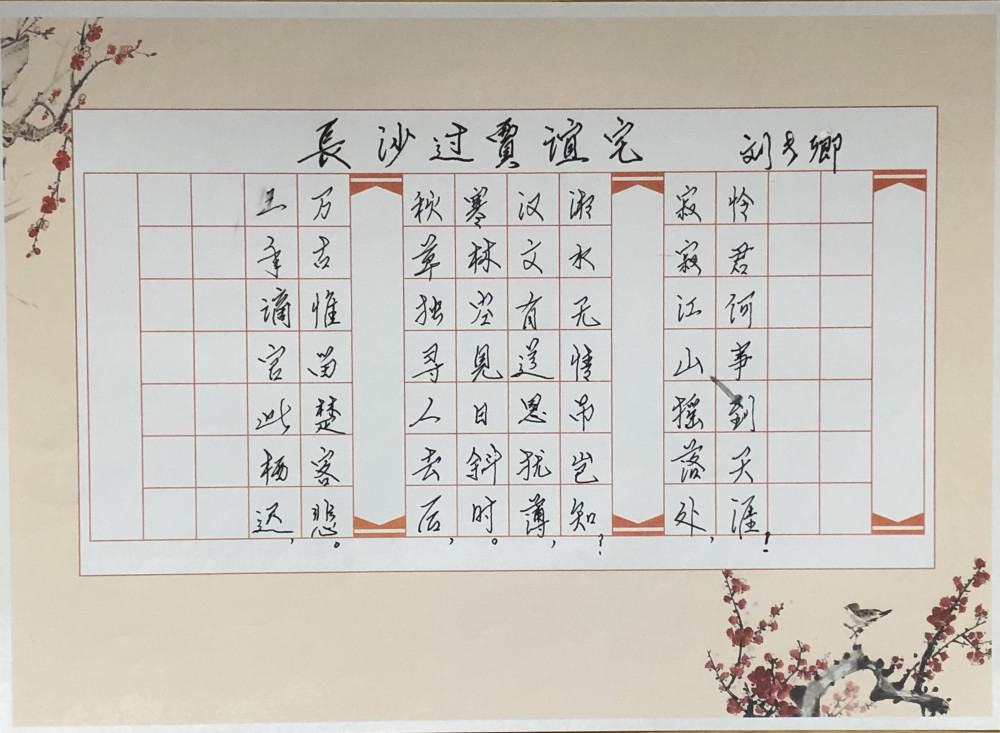 長沙过賈谊宅 刘长卿
三年谪宦此栖迟,
万古惟留楚客悲。
秋草独寻人去后,
寒林空见日斜时。
汉文有道恩犹薄,
湘水无情吊岂知?
寂寂江山摇落处,
怜君何事到天涯!